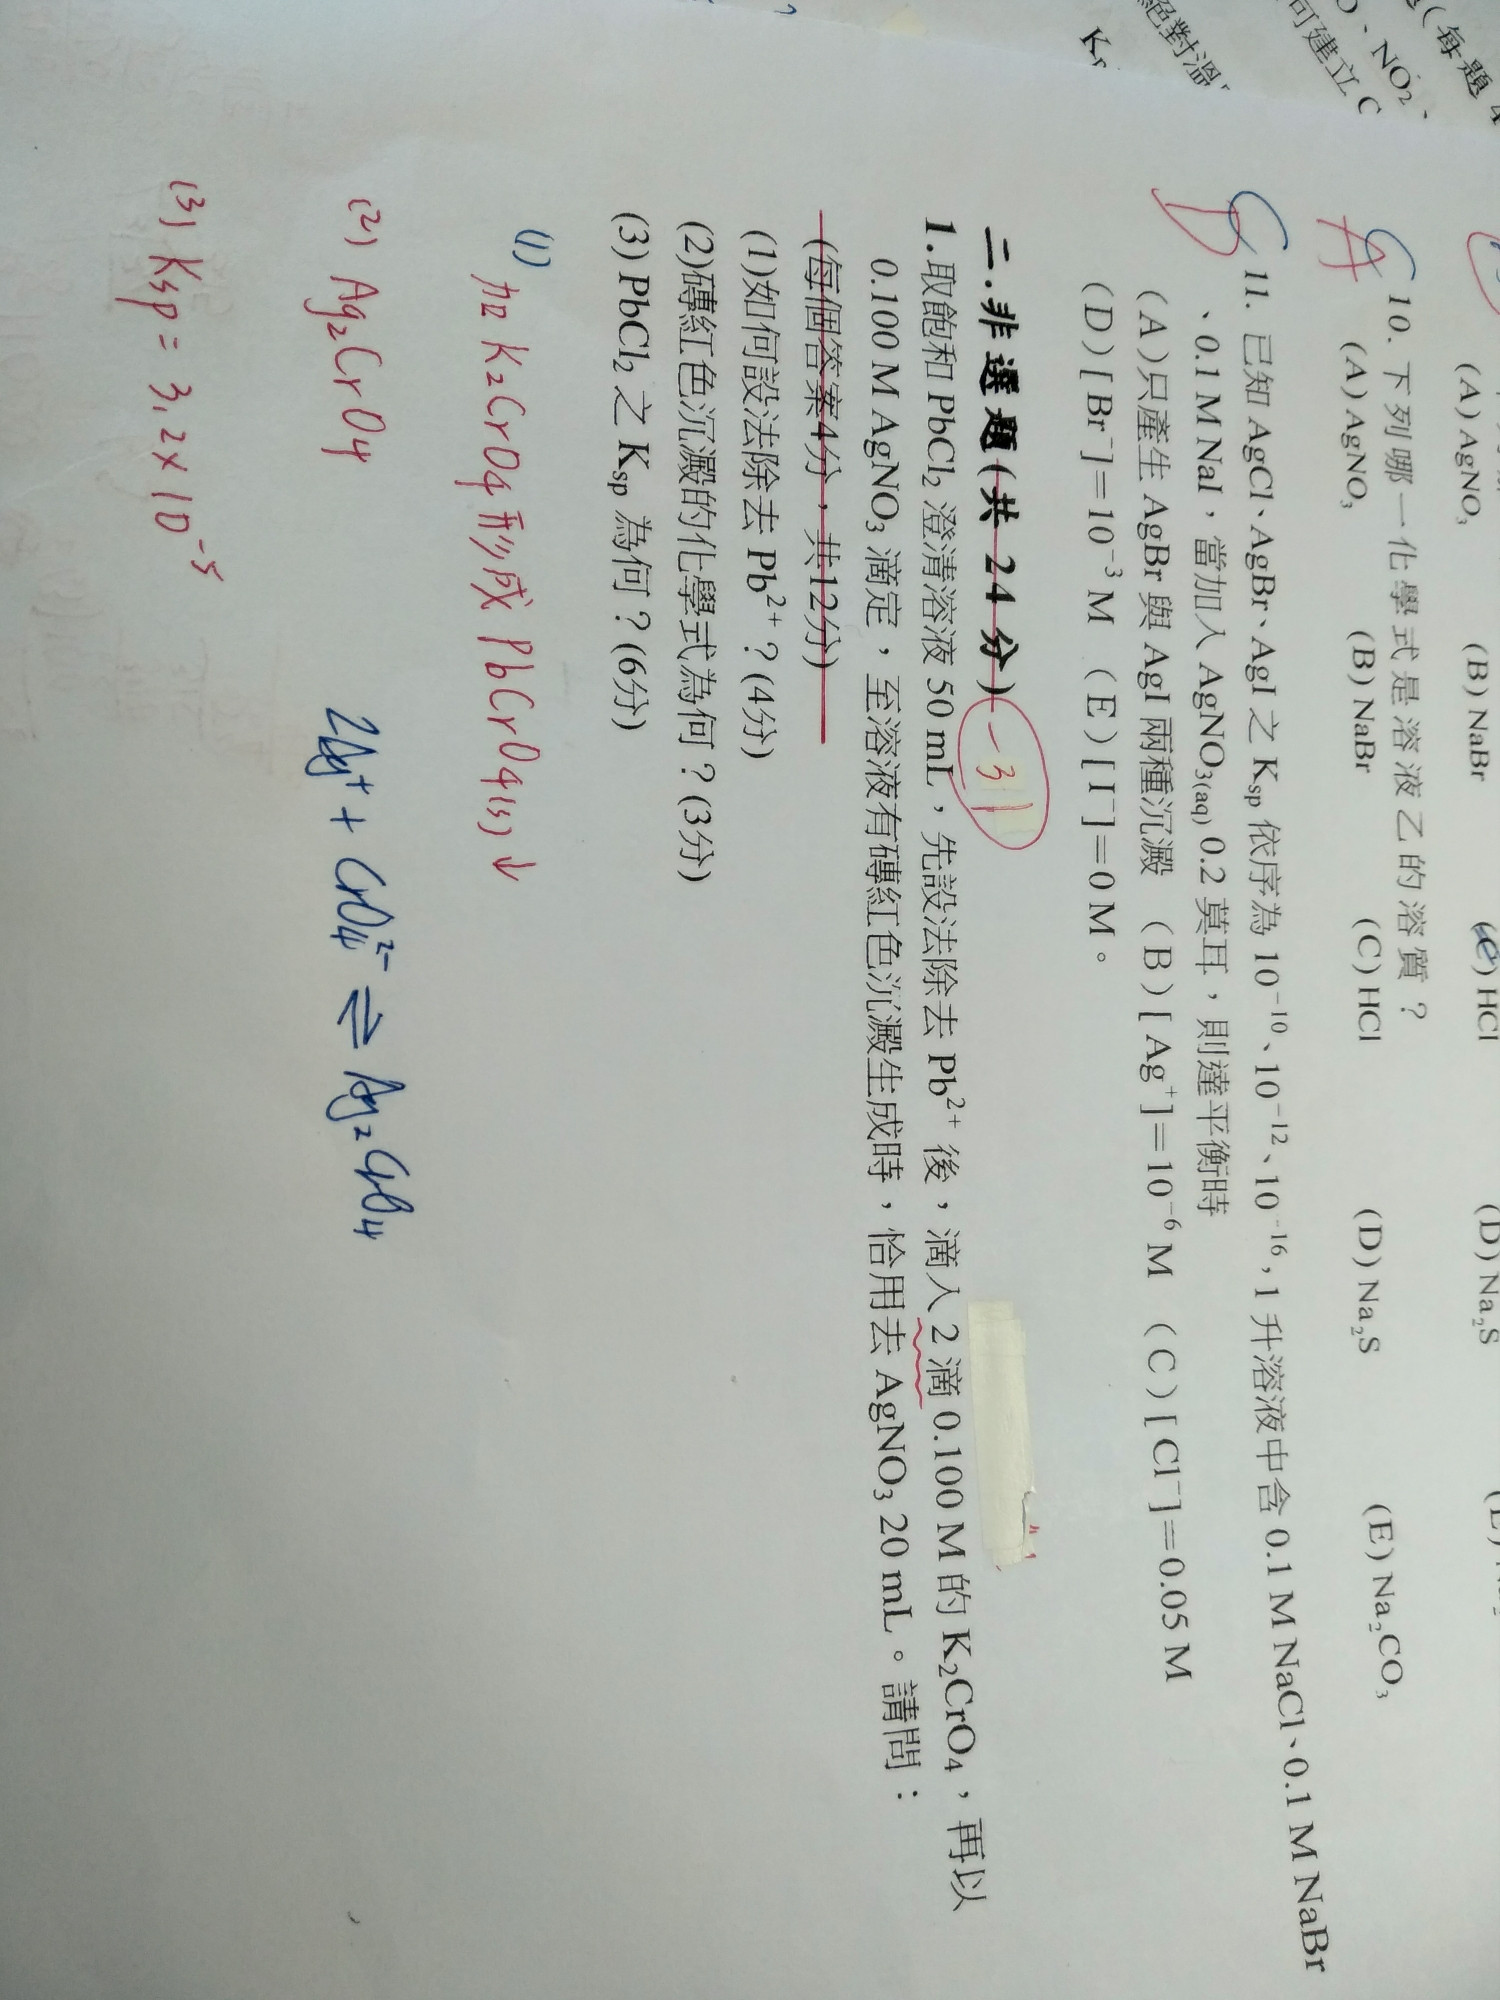 (每題
O、NO₂、
可建立 C
絕對溫
(A) AgNO₃ (B) NaBr (C) HCl (D) Na₂S
10. 下列哪一化學式是溶液乙的溶質？
(A) AgNO₃ (B) NaBr (C) HCl (D) Na₂S (E) Na₂CO₃
11. 已知 AgCl、AgBr、AgI 之 Ksp 依序為 10⁻¹⁰、10⁻¹²、10⁻¹⁶，1 升溶液中含 0.1 M NaCl、0.1 M NaBr
、0.1 M NaI，當加入 AgNO₃(aq) 0.2 莫耳，則達平衡時
(A)只產生 AgBr 與 AgI 兩種沉澱 (B)[Ag⁺]=10⁻⁶ M (C)[Cl⁻]=0.05 M
(D)[Br⁻]=10⁻³ M (E)[I⁻]=0 M。
二.非選題(共 24 分) -31
1.取飽和 PbCl₂ 澄清溶液 50 mL，先設法除去 Pb²⁺ 後，滴入 2 滴 0.100 M 的 K₂CrO₄，再以
0.100 M AgNO₃ 滴定，至溶液有磚紅色沉澱生成時，恰用去 AgNO₃ 20 mL。請問：
(每個答案4分，共12分)
(1)如何設法除去 Pb²⁺？(4分)
(2)磚紅色沉澱的化學式為何？(3分)
(3) PbCl₂ 之 Ksp 為何？(6分)
(1) 加 K₂CrO₄ 形成 PbCrO₄(s)↓
(2) Ag₂CrO₄ 2Ag⁺ + CrO₄²⁻ ⇌ Ag₂CrO₄
(3) Ksp = 3.2×10⁻⁵